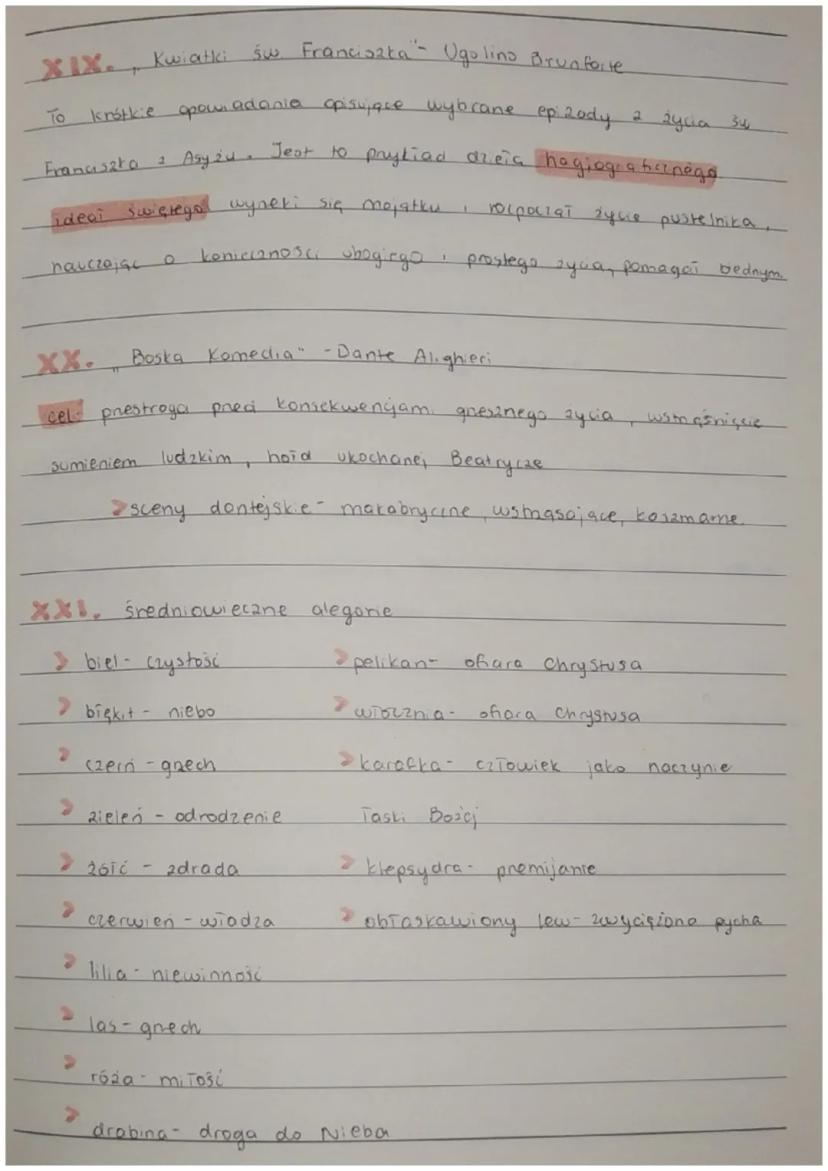 XIX. „Kwiatki św. Franciszka" - Ugolino Brunforte
To krótkie opowiadania opisujące wybrane epizody z życia św
Franciszka z Asyżu. Jest to przykład dzieła hagiograficznego
ideał świętego wyrzekł się majątku i rozpoczął życie pustelnika,
nauczając o konieczności ubogiego i prostego życia, pomagał biednym.
XX. „Boska Komedia" - Dante Alighieri
cel: przestroga przed konsekwencjami grzesznego życia, wstrząśnięcie
sumieniem ludzkim, hołd ukochanej Beatrycze
sceny dantejskie - makabryczne, wstrząsające, koszmarne.
XXI. średniowieczne alegorie
biel - czystość pelikan - ofiara Chrystusa
błękit - niebo włócznia - ofiara Chrystusa
czerń - grzech karafka - człowiek jako naczynie
zieleń - odrodzenie łaski Bożej
żółć - zdrada klepsydra - przemijanie
czerwień - władza obłaskawiony lew - zwyciężona pycha
lilia - niewinność
las - grzech
róża - miłość
drabina - droga do Nieba